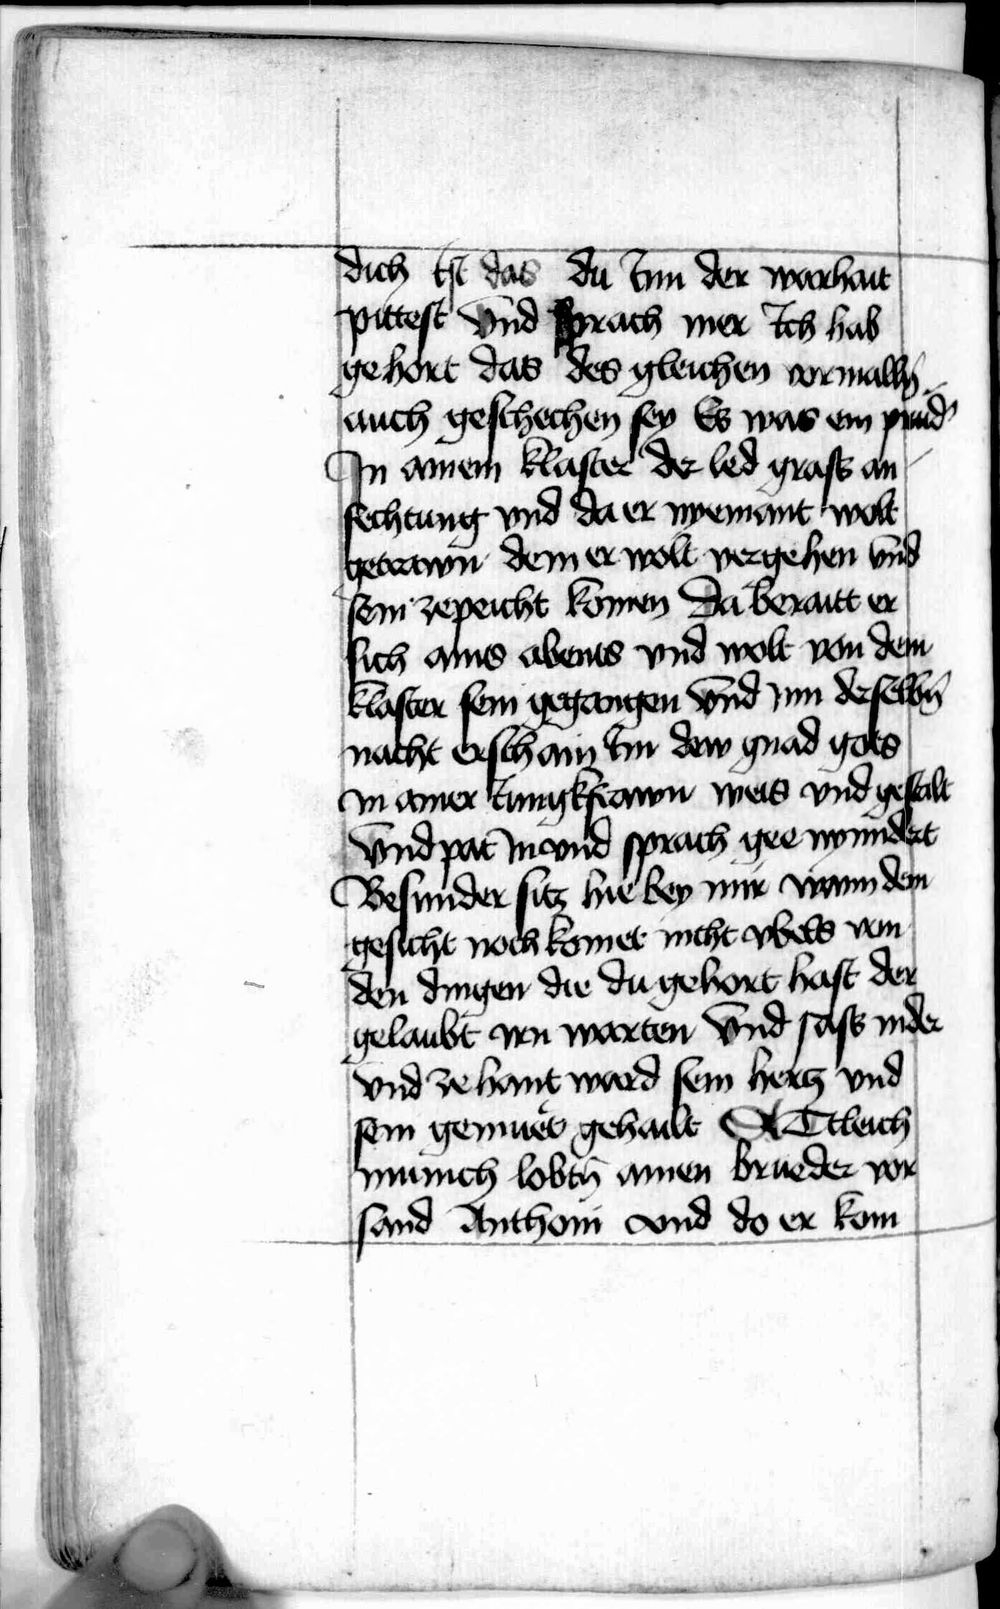 dich Ist das du Inn der warhait
pittest Vnd sprach mer Ich hab
gehort das des gleichen vormalln̄
auch geschechen sey Es was ein prud᾽
In ainem klaster der led grass an
fechtung vnd da er nyemant wolt
getrawn dem er wolt vergehen Vnd
sein ze peicht komen Da beraitt er
sich ains abents vnd wolt von dem
klaster sein gegangen Vnd inn derselbn̄
nacht erschain Im dew gnad gots
in ainer Jungkfrawn weis vnd gestalt
Vnd pat In vnd sprach gee nyndert
Besunder sitz hie bey mir wann dem
gesicht noch komet nicht vbels von
den dingen die du gehort hast der
gelaubt irn warten Vnd sass nider
vnd ze hant ward sein hertz vnd
sein gemuet gehailt Etleich
munich lobtn̄ ainen brueder vor
sand Anthoni vnd do er kom